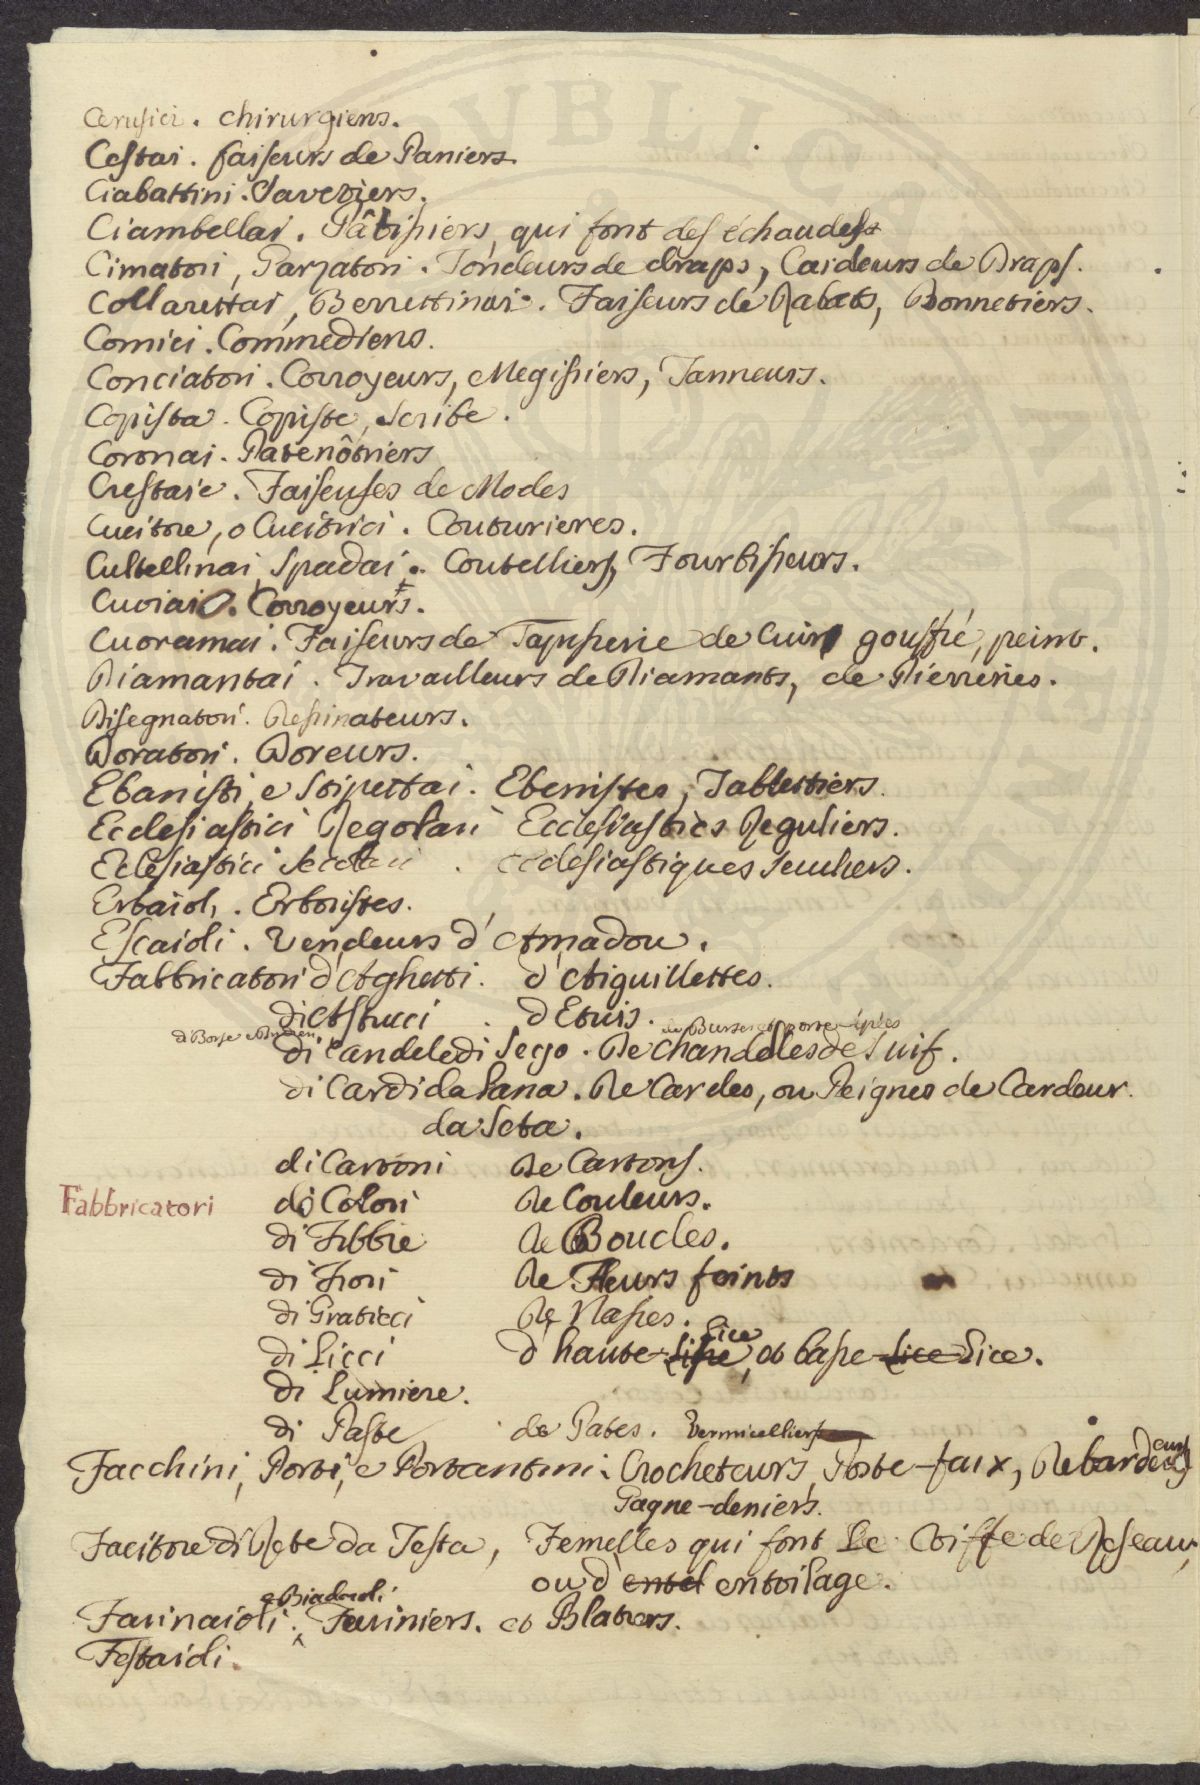 Cerusici. chirurgiens.
Cestai. faiseurs de Paniers.
Ciabattini. Saveziers.
Ciambellai. Pâtissiers, qui font des échaudess
Cimatori, Garzatori. Tondeurs de draps, Cardeurs de Draps.
Collarettai, Berrettinai. Faiseurs de Rabats, Bonnetiers.
Comici. Commediens.
Conciatori. Corroyeurs, Megissiers, Tanneurs.
Copista. Copiste, Scribe.
Coronai. Patenôtriers
Crestaie. Faiseuses de Modes
Cucitore, o Cucitrici. Couturieres.
Cultellinai, Spadai. Coutelliers, Fourbisseurs.
Cuoiai. Corroyeurs.
Cuoramai. Faiseurs de Tapisserie de Cuir gouffré, peint.
Diamantai. Travailleurs de Diamants, de Pierreries.
Disegnatori. Dessinateurs.
Doratori. Doreurs.
Ebanisti, e Stipettai. Ebenistes, Tablettiers.
Ecclesiastici Regolari Ecclesiastics Reguliers.
Eclesiastici Secolari. Ecclesiastiques Seculiers.
Erbaioli. Erboristes.
Escaioli. Vendeurs d'Amadou.
Fabbricatori d'Aghetti. d'Aiguillettes.
di Astucci. d'Etuis.
di Borse de Burses et porte-épées
di Candele di Sego. De Chandelles de Suif.
di Cardi da Lana. De Cardes, ou Peignes de Cardeur.
da Seta.
di Cartoni De Cartons.
Fabbricatori di Colori De Couleurs.
di Fibbie De Boucles.
di Fiori De Fleurs feints
di Graticci De Nasses.
di Licci d'haute-Lisse Lice, et basse-Lice Lice.
di Lumiere.
di Paste de Pates. Vermicelliers
Facchini, Porti, e Portantini. Crocheteurs, Porte-faix, Debardeurs
Gagne-deniers.
Facitore di Rete da Testa, Femelles qui font Le Coiffe de Reseau,
ou d'entel entoilage.
e Biadaioli
Farinaioli. Fariniers. et Blatiers.
Festaioli.